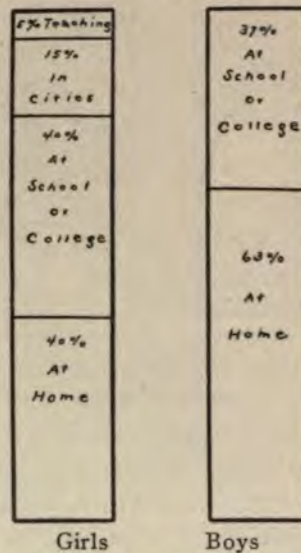 5% Teaching
15%
In
Cities
40%
At
School
or
College
40%
At
Home
Girls
37%
At
School
or
College
63%
At
Home
Boys